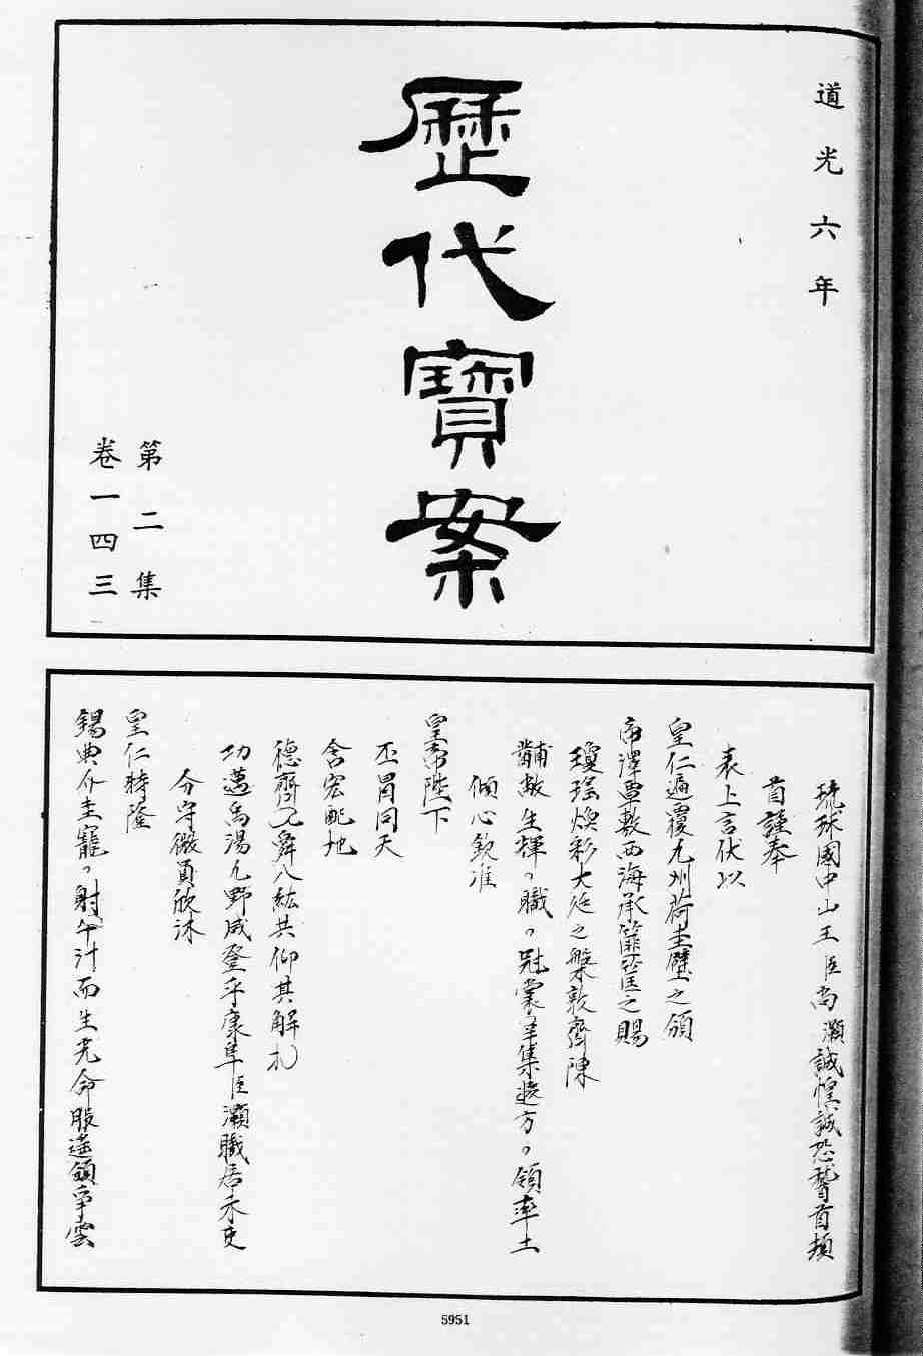 道光六年
歷代寶案
第二集
卷一四三
琉球國中山王臣尚灝誠惶誠恐稽首頓
首謹奉
表上言伏以
皇仁遍覆九州荷圭璧之頒
帝澤覃敷西海承筐篚之賜
瓊瑶煥彩大廷之槃敦齊陳
黼黻生輝
傾心欽准
皇帝陛下
丕冒同天
含宏配地
德齊 舜八紘共仰其解
功邁禹湯九野咸登乎康阜臣灝職居末吏
分守微員欣沐
皇仁特隆
錫典介圭寵 射 而生光命服遥頒
5951